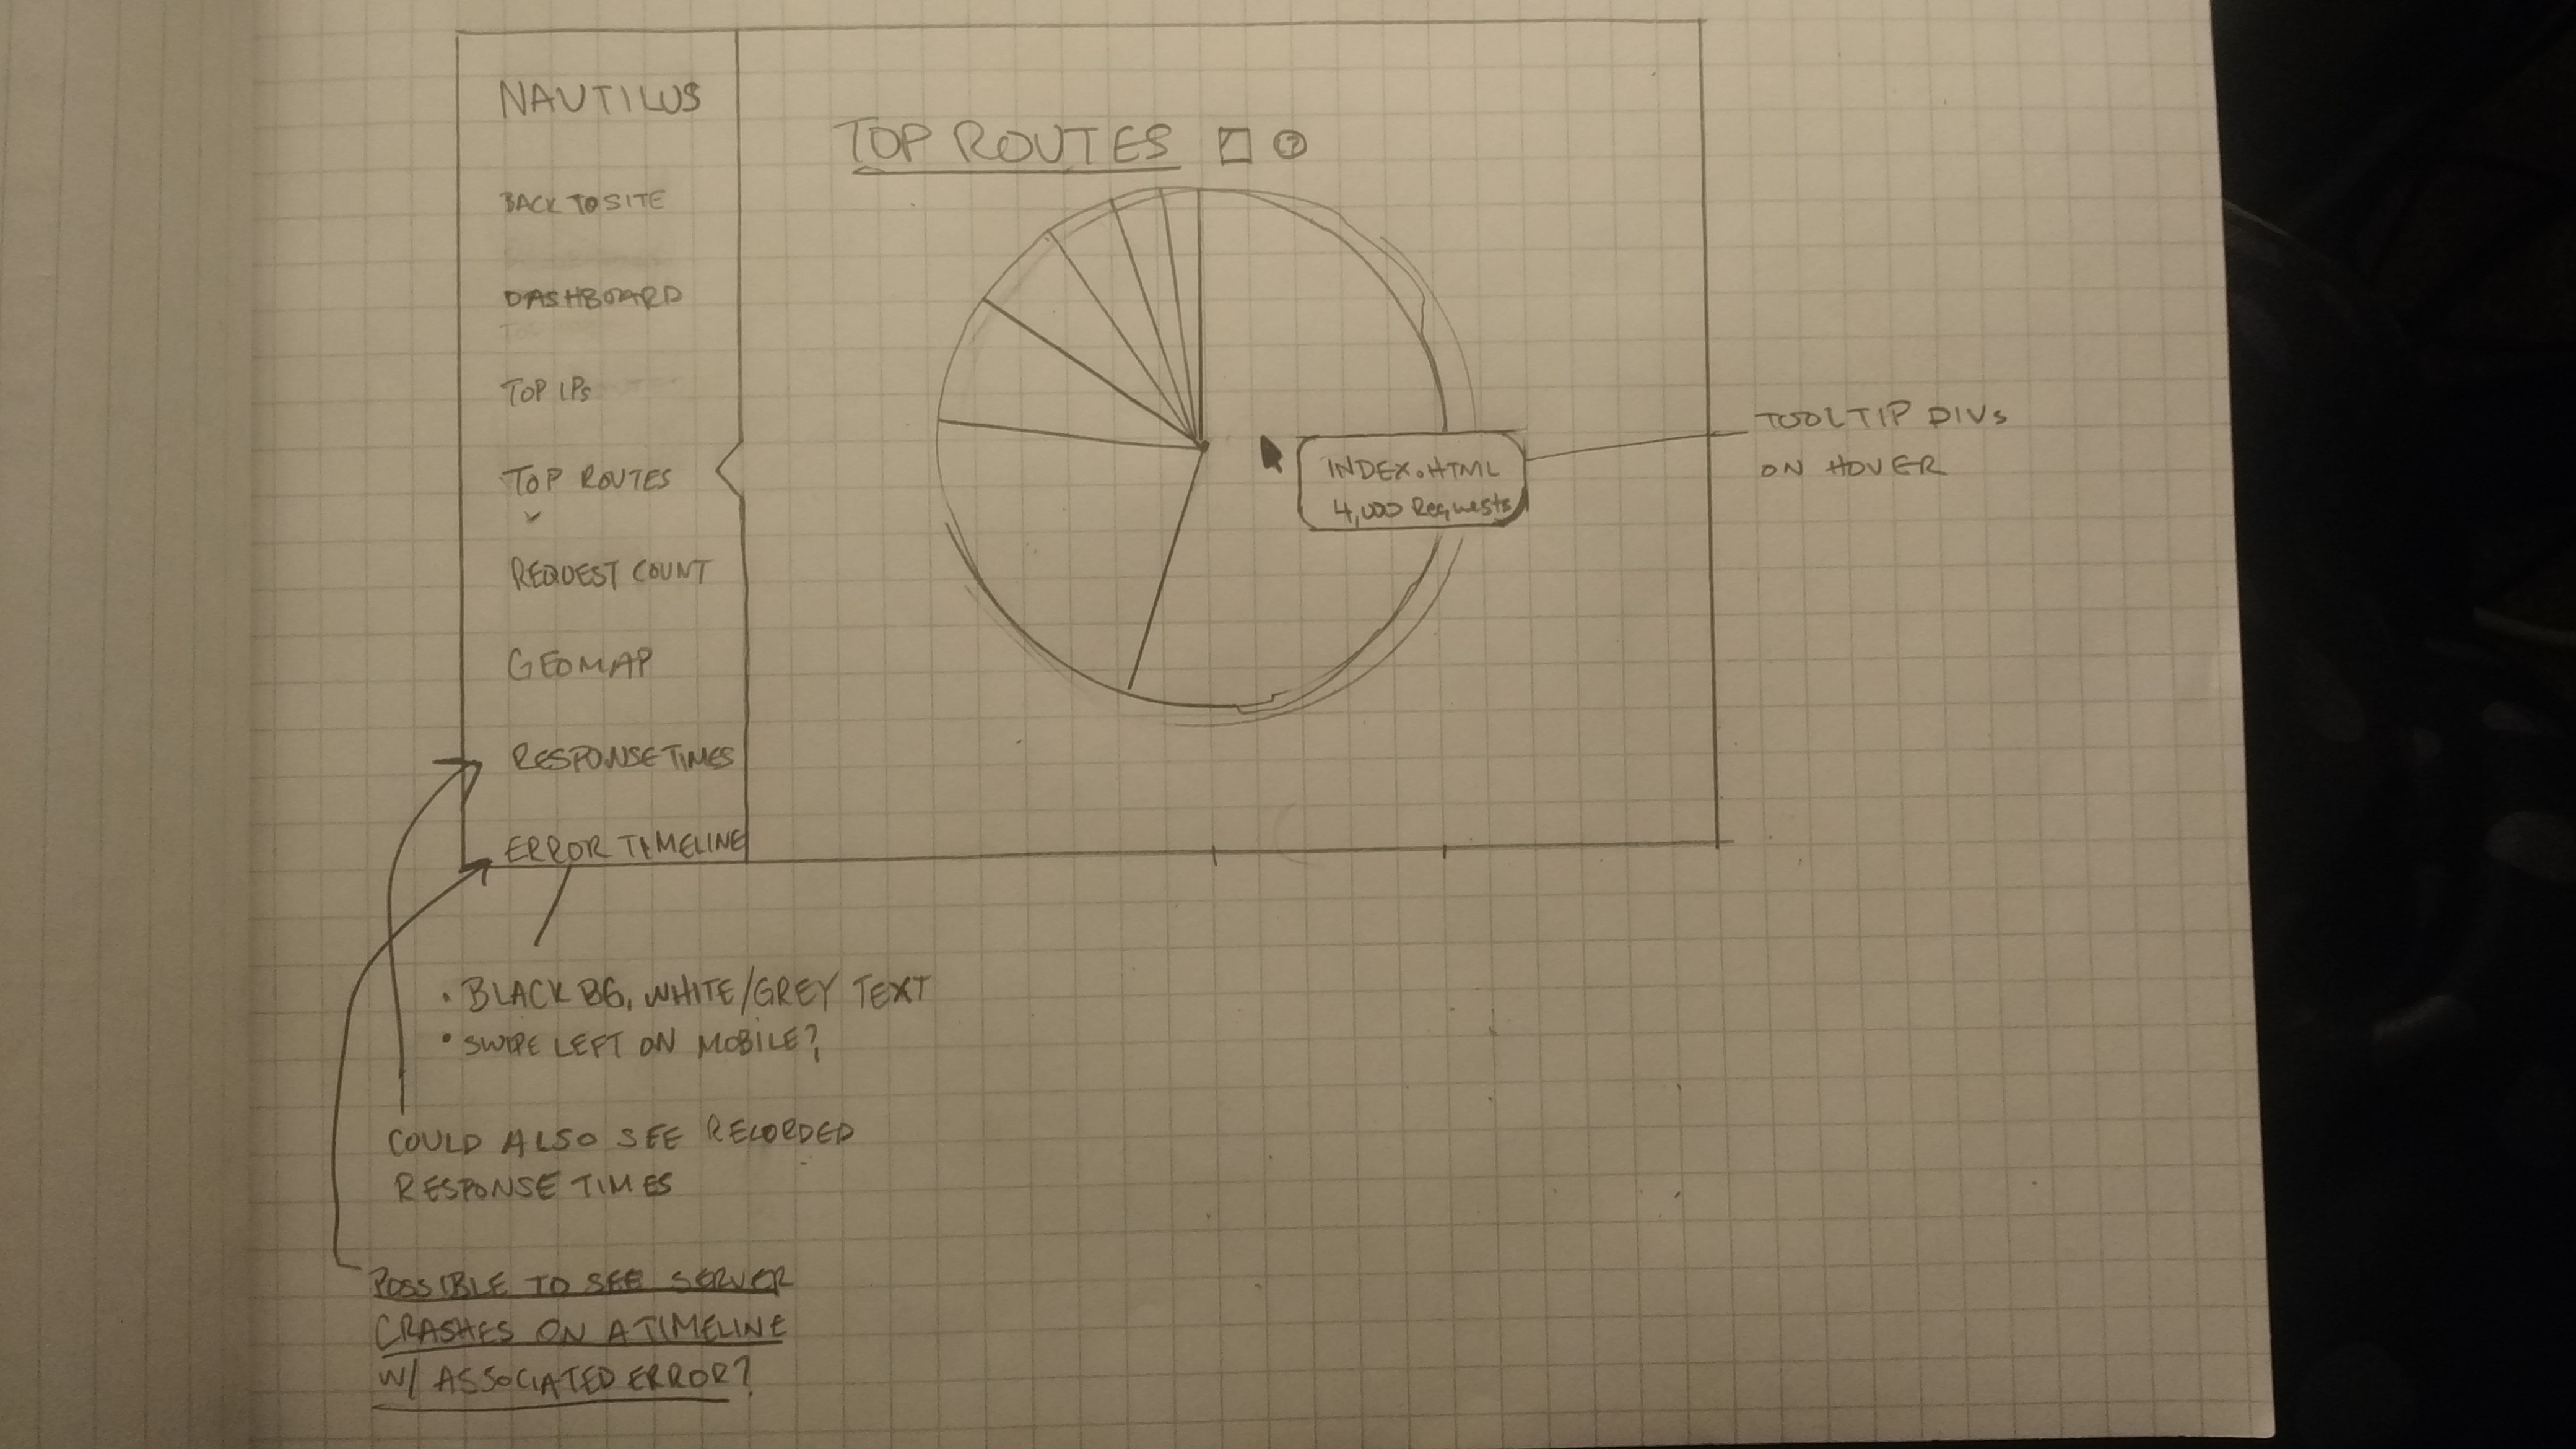 NAUTILUS
BACK TO SITE
DASHBOARD
TOP IPs
TOP ROUTES
REQUEST COUNT
GEOMAP
RESPONSE TIMES
ERROR TIMELINE
TOP ROUTES ?
INDEX.HTML
4,000 Requests
TOOLTIP DIVs
ON HOVER
• BLACK BG, WHITE/GREY TEXT
• SWIPE LEFT ON MOBILE?
COULD ALSO SEE RECORDED
RESPONSE TIMES
POSSIBLE TO SEE SERVER
CRASHES ON A TIMELINE
W/ ASSOCIATED ERROR?